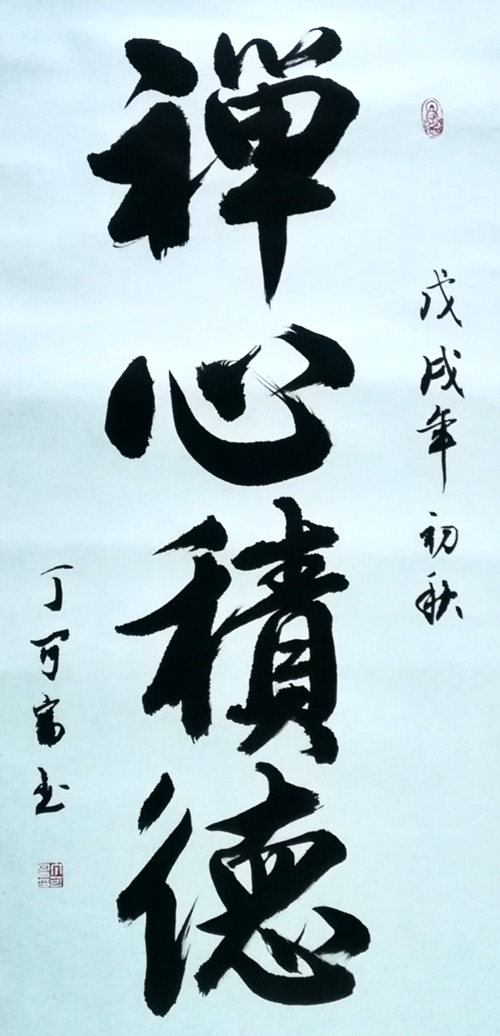 戊戌年初秋
禪心積德
丁可富书